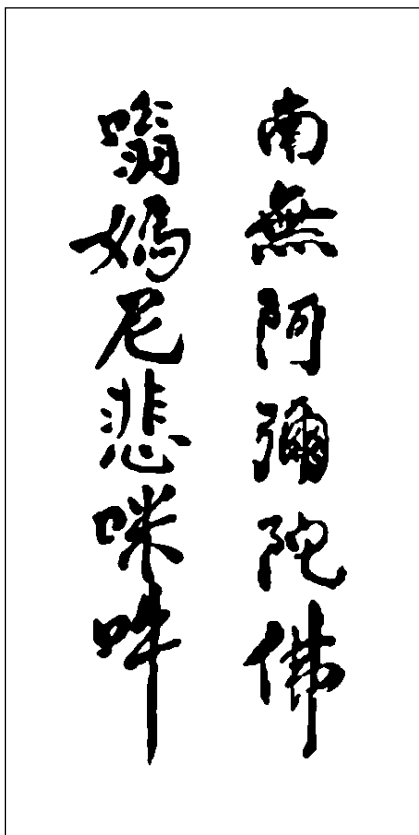 南無阿彌陀佛
嗡媽尼悲咪吽